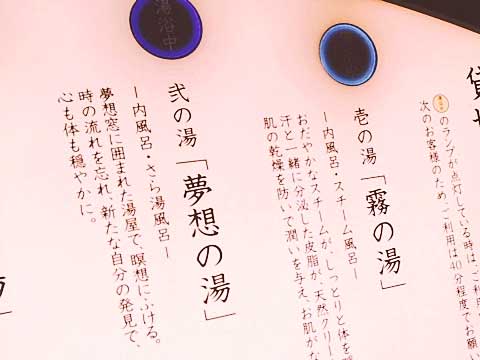 貸
のランプが点灯している時は、ご利用
次のお客様のため、ご利用は40分程度でお願い
壱の湯「霧の湯」
―内風呂・スチーム風呂―
おだやかなスチームが、しっとりと体を
汗と一緒に分泌した皮脂が、天然クリー
肌の乾燥を防いで潤いを与え、お肌が
弐の湯「夢想の湯」
―内風呂・さら湯風呂―
夢想窓に囲まれた湯屋で、瞑想にふける。
時の流れを忘れ、新たな自分の発見で、
心も体も穏やかに。
湯浴中